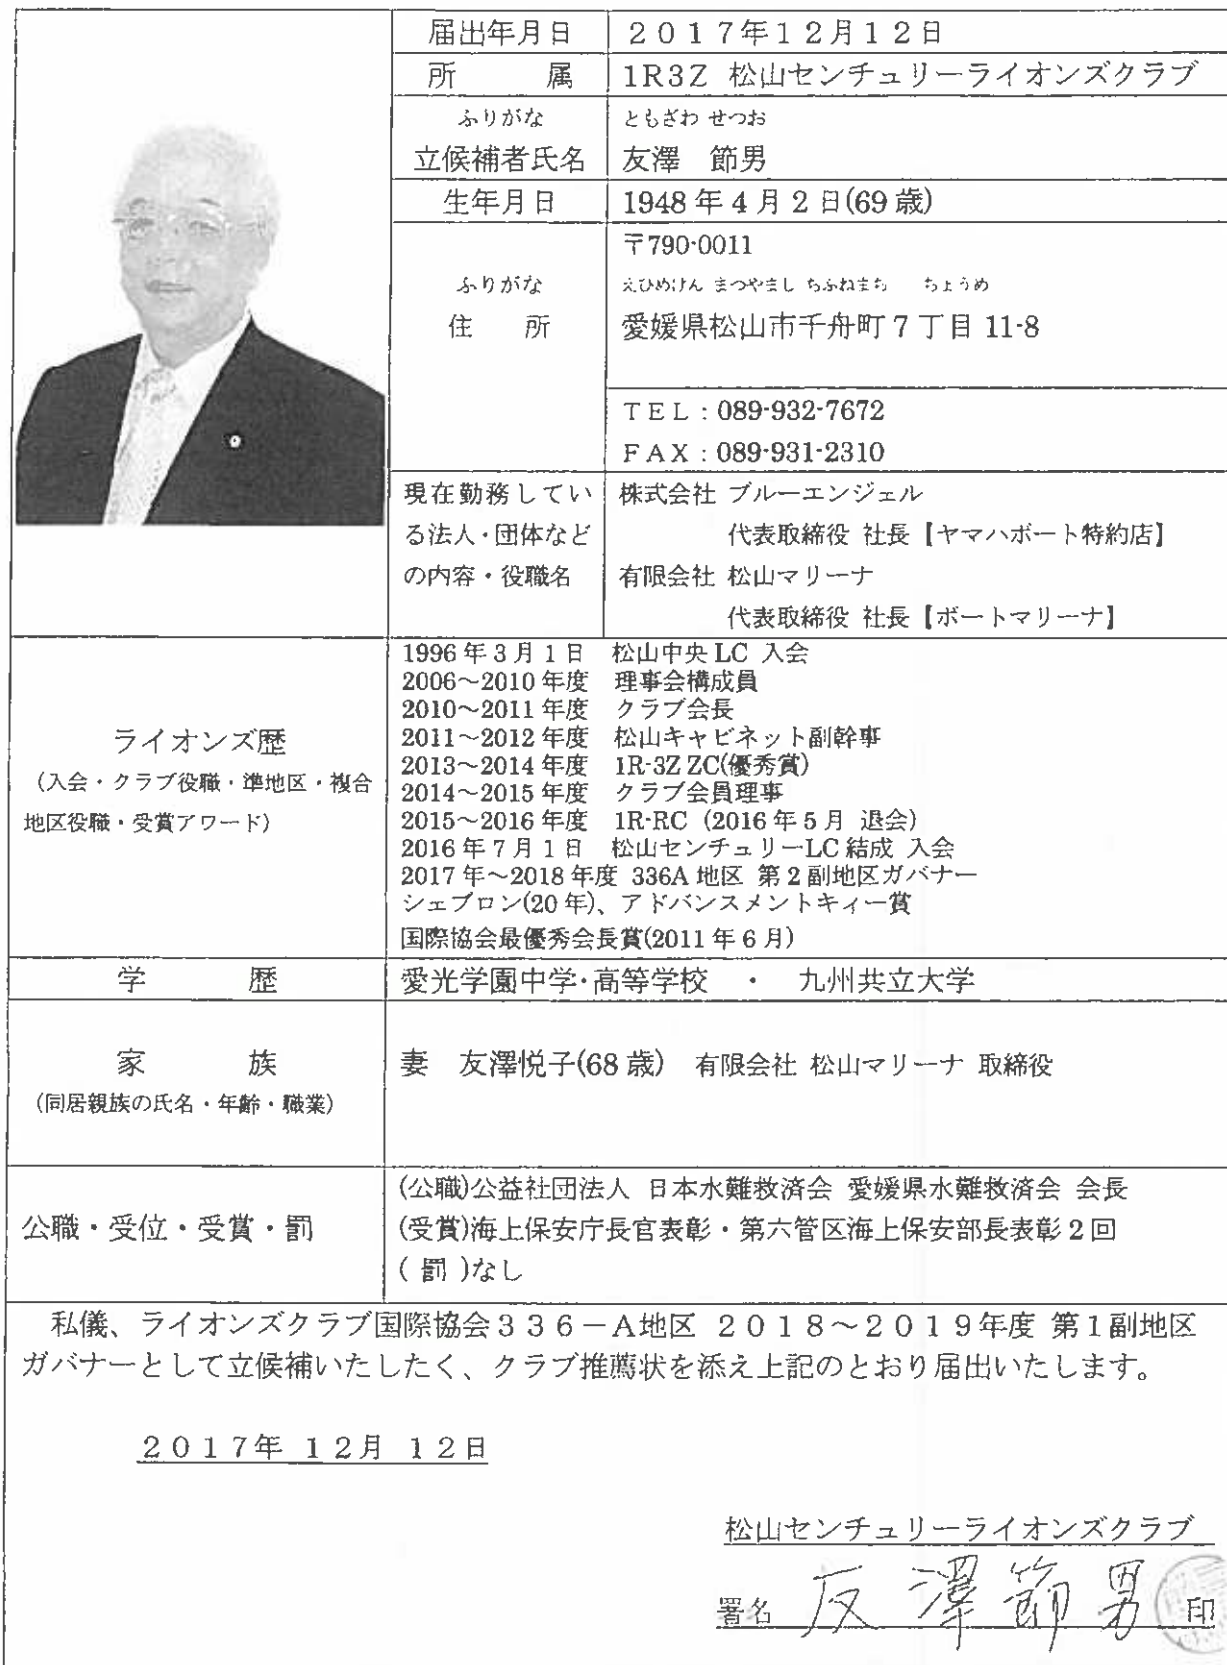 届出年月日 2017年12月12日
所 属 1R3Z 松山センチュリーライオンズクラブ
ふりがな ともざわ せつお
立候補者氏名 友澤 節男
生年月日 1948年4月2日(69歳)
〒790-0011
ふりがな えひめけん まつやまし ちふねまち ちょうめ
住 所 愛媛県松山市千舟町7丁目11-8
TEL:089-932-7672
FAX:089-931-2310
現在勤務してい 株式会社 ブルーエンジェル
る法人・団体など 代表取締役 社長【ヤマハボート特約店】
の内容・役職名 有限会社 松山マリーナ
代表取締役 社長【ボートマリーナ】
ライオンズ歴
(入会・クラブ役職・準地区・複合
地区役職・受賞アワード)
1996年3月1日 松山中央LC 入会
2006~2010年度 理事会構成員
2010~2011年度 クラブ会長
2011~2012年度 松山キャビネット副幹事
2013~2014年度 1R-3Z ZC(優秀賞)
2014~2015年度 クラブ会員理事
2015~2016年度 1R-RC (2016年5月 退会)
2016年7月1日 松山センチュリーLC結成 入会
2017年~2018年度 336A地区 第2副地区ガバナー
シェブロン(20年)、アドバンスメントキィー賞
国際協会最優秀会長賞(2011年6月)
学 歴 愛光学園中学・高等学校 ・ 九州共立大学
家 族 妻 友澤悦子(68歳) 有限会社 松山マリーナ 取締役
(同居親族の氏名・年齢・職業)
公職・受位・受賞・罰
(公職)公益社団法人 日本水難救済会 愛媛県水難救済会 会長
(受賞)海上保安庁長官表彰・第六管区海上保安部長表彰2回
( 罰 )なし
私儀、ライオンズクラブ国際協会336-A地区 2018~2019年度 第1副地区
ガバナーとして立候補いたしたく、クラブ推薦状を添え上記のとおり届出いたします。
2017年 12月 12日
松山センチュリーライオンズクラブ
署名 友澤節男 印